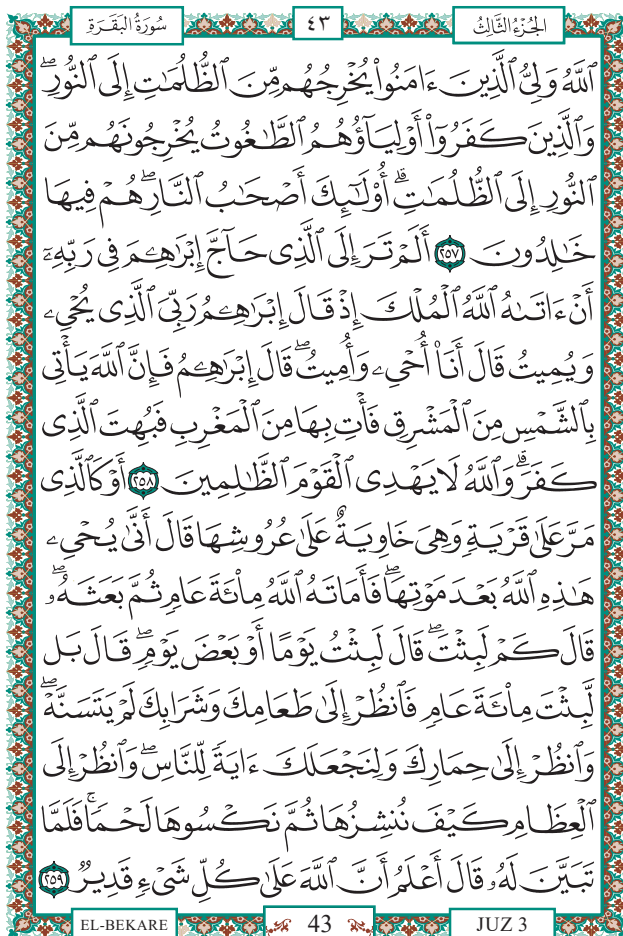 سُورَةُ الْبَقَرَةِ ٤٣ الجُزْءُ الثَّالِثُ
ٱللَّهُ وَلِىُّ ٱلَّذِينَ ءَامَنُوا۟ يُخْرِجُهُم مِّنَ ٱلظُّلُمَٰتِ إِلَى ٱلنُّورِ ۖ
وَٱلَّذِينَ كَفَرُوٓا۟ أَوْلِيَآؤُهُمُ ٱلطَّٰغُوتُ يُخْرِجُونَهُم مِّنَ
ٱلنُّورِ إِلَى ٱلظُّلُمَٰتِ ۗ أُو۟لَٰٓئِكَ أَصْحَٰبُ ٱلنَّارِ ۖ هُمْ فِيهَا
خَٰلِدُونَ ٢٥٧ أَلَمْ تَرَ إِلَى ٱلَّذِى حَآجَّ إِبْرَٰهِـۧمَ فِى رَبِّهِۦٓ
أَنْ ءَاتَىٰهُ ٱللَّهُ ٱلْمُلْكَ إِذْ قَالَ إِبْرَٰهِـۧمُ رَبِّىَ ٱلَّذِى يُحْىِۦ
وَيُمِيتُ قَالَ أَنَا۠ أُحْىِۦ وَأُمِيتُ ۖ قَالَ إِبْرَٰهِـۧمُ فَإِنَّ ٱللَّهَ يَأْتِى
بِٱلشَّمْسِ مِنَ ٱلْمَشْرِقِ فَأْتِ بِهَا مِنَ ٱلْمَغْرِبِ فَبُهِتَ ٱلَّذِى
كَفَرَ ۗ وَٱللَّهُ لَا يَهْدِى ٱلْقَوْمَ ٱلظَّٰلِمِينَ ٢٥٨ أَوْ كَٱلَّذِى
مَرَّ عَلَىٰ قَرْيَةٍ وَهِىَ خَاوِيَةٌ عَلَىٰ عُرُوشِهَا قَالَ أَنَّىٰ يُحْىِۦ
هَٰذِهِ ٱللَّهُ بَعْدَ مَوْتِهَا ۖ فَأَمَاتَهُ ٱللَّهُ مِا۟ئَةَ عَامٍ ثُمَّ بَعَثَهُۥ ۖ
قَالَ كَمْ لَبِثْتَ ۖ قَالَ لَبِثْتُ يَوْمًا أَوْ بَعْضَ يَوْمٍ ۖ قَالَ بَل
لَّبِثْتَ مِا۟ئَةَ عَامٍ فَٱنظُرْ إِلَىٰ طَعَامِكَ وَشَرَابِكَ لَمْ يَتَسَنَّهْ ۖ
وَٱنظُرْ إِلَىٰ حِمَارِكَ وَلِنَجْعَلَكَ ءَايَةً لِّلنَّاسِ ۖ وَٱنظُرْ إِلَى
ٱلْعِظَامِ كَيْفَ نُنشِزُهَا ثُمَّ نَكْسُوهَا لَحْمًا ۚ فَلَمَّا
تَبَيَّنَ لَهُۥ قَالَ أَعْلَمُ أَنَّ ٱللَّهَ عَلَىٰ كُلِّ شَىْءٍ قَدِيرٌ ٢٥٩
EL-BEKARE 43 JUZ 3